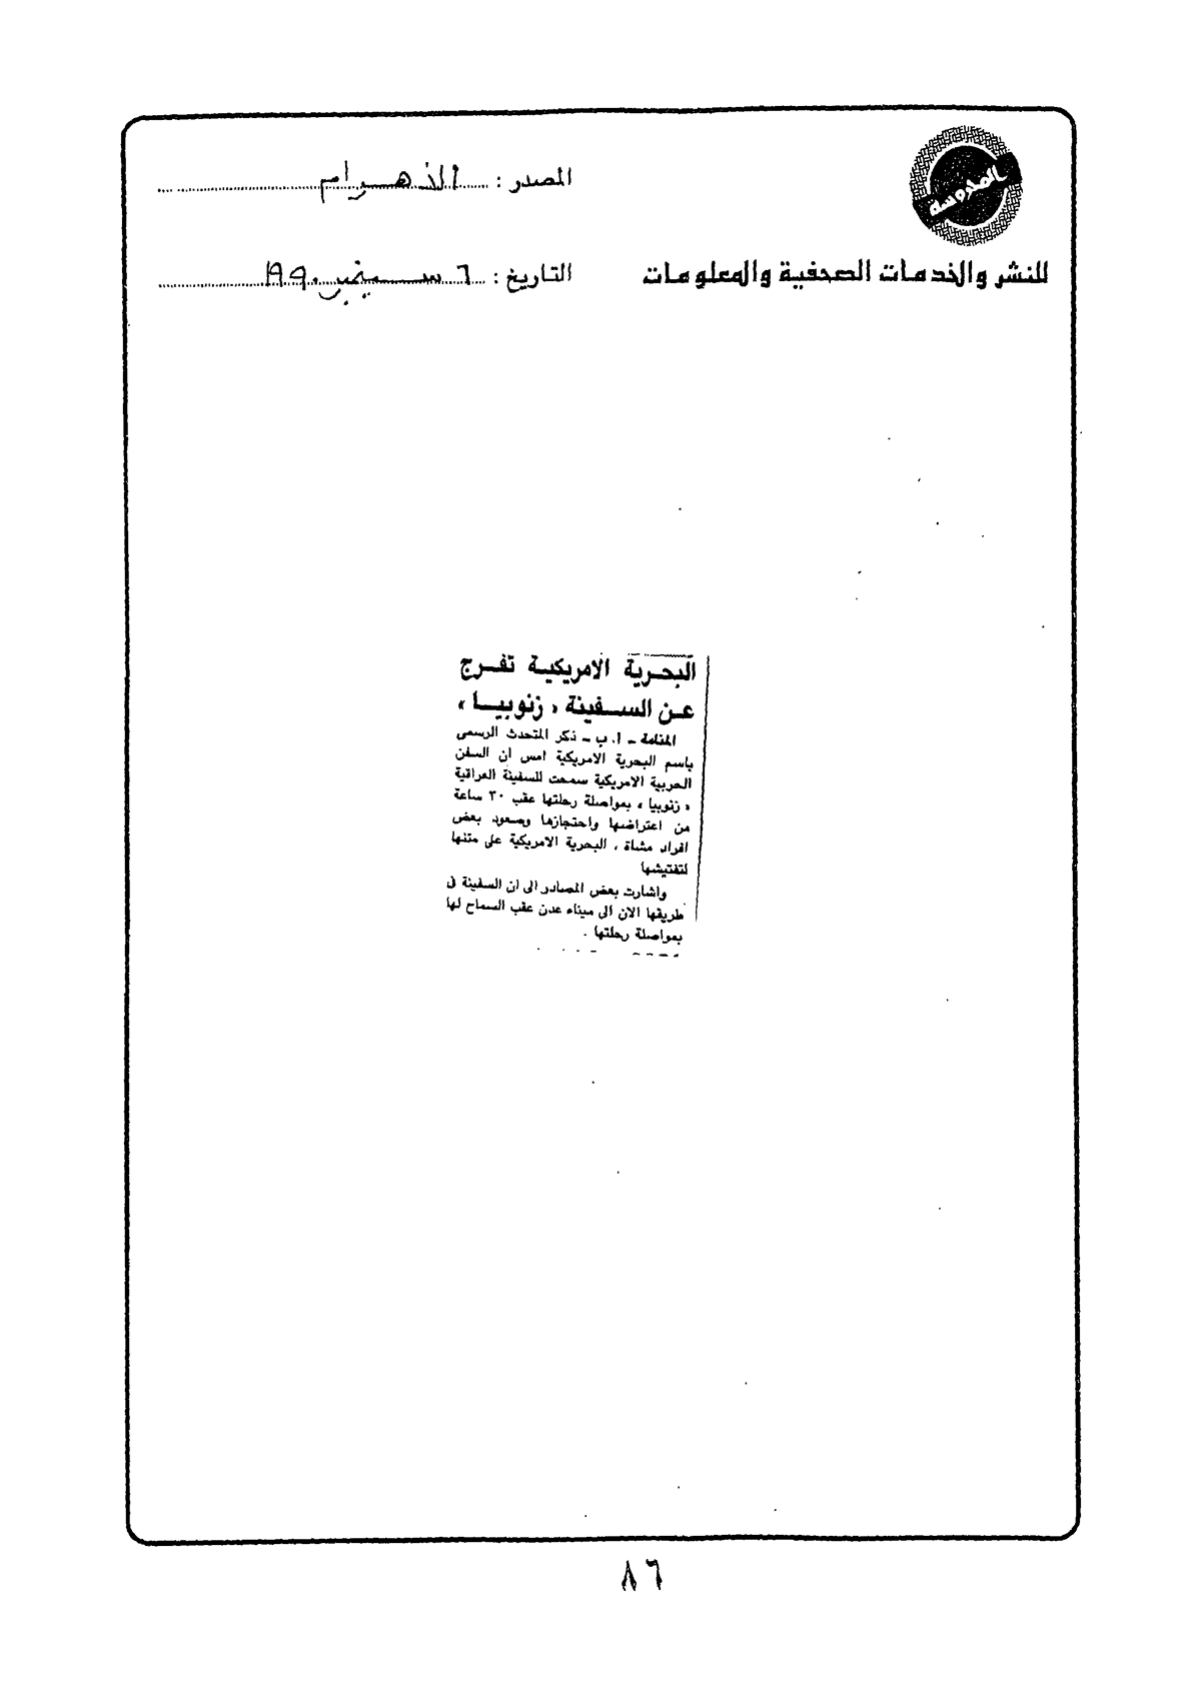 المحروسة
المصدر : الأهرام
للنشر والخدمات الصحفية والمعلومات
التاريخ : ٦ سبتمبر ١٩٩٠
البحرية الامريكية تفرج
عن السفينة « زنوبيا »
المنامة ـ ا . ب ـ ذكر المتحدث الرسمى
باسم البحرية الامريكية امس ان السفن
الحربية الامريكية سمحت للسفينة العراقية
« زنوبيا » بمواصلة رحلتها عقب ٣٠ ساعة
من اعتراضها واحتجازها وصعود بعض
افراد مشاة ، البحرية الامريكية على متنها
لتفتيشها
واشارت بعض المصادر الى ان السفينة فى
طريقها الان الى ميناء عدن عقب السماح لها
بمواصلة رحلتها .
٨٦